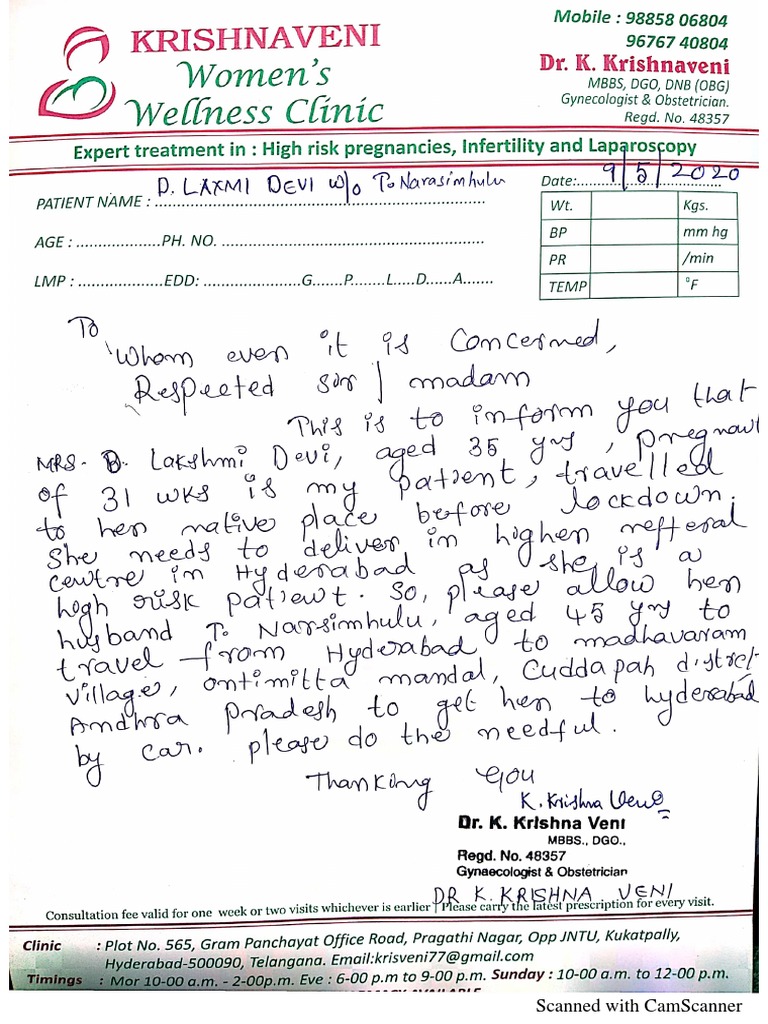 KRISHNAVENI
Women's
Wellness Clinic
Mobile : 98858 06804
96767 40804
Dr. K. Krishnaveni
MBBS, DGO, DNB (OBG)
Gynecologist & Obstetrician.
Regd. No. 48357
Expert treatment in : High risk pregnancies, Infertility and Laparoscopy
PATIENT NAME : D. LAXMI DEVI w/o T. Narasimhulu
Date: 9/5/2020
AGE : ...................PH. NO. ...............................................
LMP : ...................EDD: .....................G.......P.......L.....D.....A.......
Wt. Kgs.
BP mm hg
PR /min
TEMP °F
To
Whom ever it is Concerned,
Respected sir / madam
This is to inform you that
MRS. D. Lakshmi Devi, aged 35 yrs, pregnant
of 31 wks is my patient, travelled
to her native place before lockdown.
She needs to deliver in higher refferal
centre in Hyderabad as she is a
high risk patient. So, please allow her
husband T. Narsimhulu, aged 45 yrs to
travel from Hyderabad to madhavaram
village, ontimitta mandal, Cuddapah district
Andhra Pradesh to get her to hyderabad
by car. please do the needful.
Thanking you
K. Krishna Veni
Dr. K. Krishna Veni
MBBS., DGO.,
Regd. No. 48357
Gynaecologist & Obstetrician
DR K. KRISHNA VENI
Consultation fee valid for one week or two visits whichever is earlier Please carry the latest prescription for every visit.
Clinic : Plot No. 565, Gram Panchayat Office Road, Pragathi Nagar, Opp JNTU, Kukatpally,
Hyderabad-500090, Telangana. Email:krisveni77@gmail.com
Timings : Mor 10-00 a.m. - 2-00p.m. Eve : 6-00 p.m to 9-00 p.m. Sunday : 10-00 a.m. to 12-00 p.m.
Scanned with CamScanner